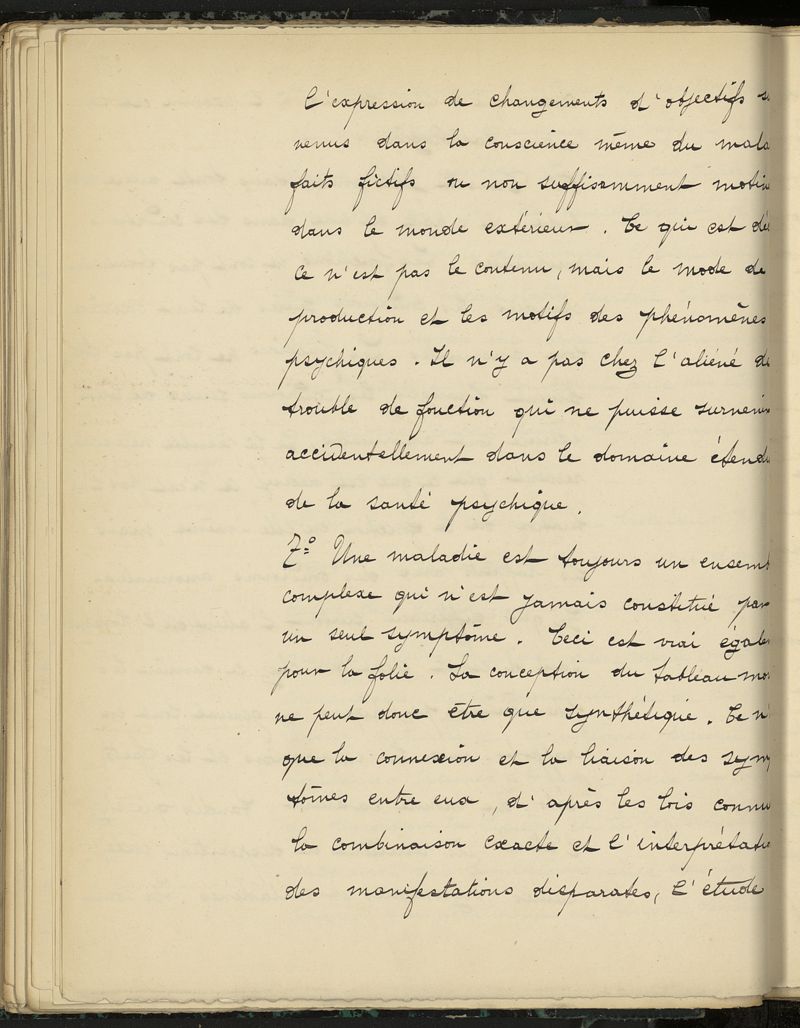 l'expression de changements d'objectifs su
nenus dans la conscience même du mala
faits fictifs ou non suffisamment motiv
dans le monde extérieur. Ce qui est déc
ce n'est pas le contenu, mais le mode de
production et les motifs des phénomènes
psychiques. Il n'y a pas chez l'aliéné de
trouble de fonction qui ne puisse survenir
accidentellement dans le domaine étendu
de la santé psychique.
7º Une maladie est toujours un ensemb
complexe qui n'est jamais constitué par
un seul symptôme. Ceci est vrai égalem
pour la folie. La conception du tableau mor
ne peut donc être que synthétique. Ce n'
que la connexion et la liaison des symp
tômes entre eux, d'après les lois connu
la combinaison exacte et l'interprétatio
des manifestations disparates, l'étude